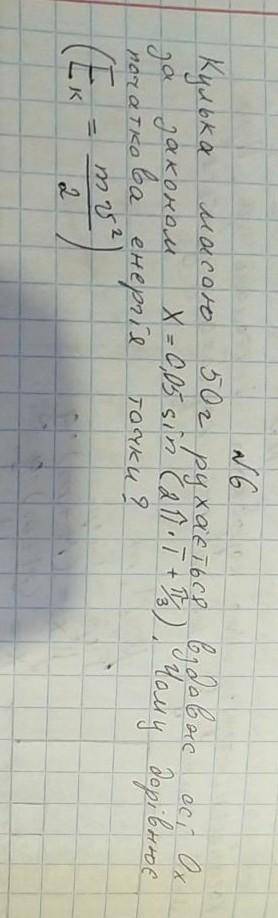 №6
Кулька масою 50г рухається вздовж осі Ox
за законом X = 0,05 sin (2π·T + π/3). Чому дорівнює
початкова енергія точки?
(Eк = mv²/2)